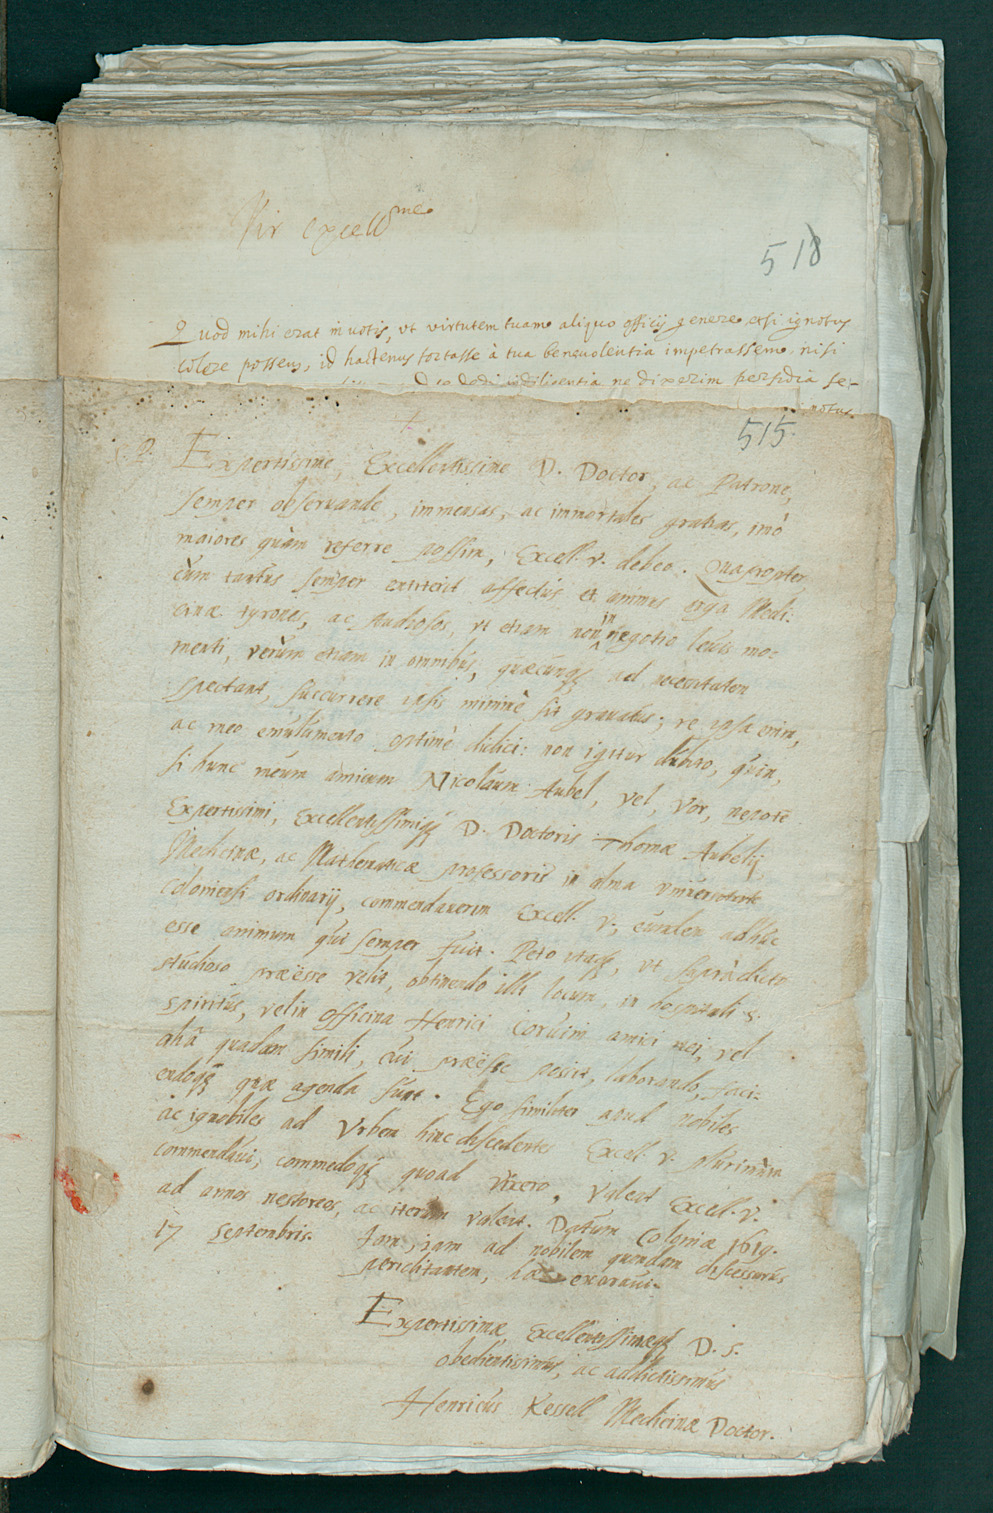 Vir excell^me
518
Quod mihi erat in votis, vt virtutem tuam aliquo officij genere etsi ignotus
colere possem, id hactenus fortasse à tua beneuolentia impetrassem nisi
diligentia ne dixerim perfidia se-
motus
515
Expertissime, Excellentissime D. Doctor, ac Patrone,
semper obseruande, immensas, ac immortales gratias, imò
maiores quàm referre possim, Excell. v. debeo. Quapropter
cùm tantus semper extiterit affectus et animus erga Medi:
cinæ tyrones, ac studiosos, vt etiam non in negotio leuis mo:
menti, verùm etiam in omnibus, quæcunq3 ad necessitatem
spectant, succurrere ipsis minimè sit grauatus; re ipsa enim,
ac meo emulumento optimè didici: non igitur dubito, quin,
si hunc meum amicum Nicolaum Aubel, vel, Vor, nepotē
Expertissimi, Excellentissimiq3 D. Doctoris Thomæ Aubelij
Medicinæ, ac Mathematicæ professoris in alma vniuersitate
coloniensi ordinarij, commendauerim Excell. v., eundem adhuc
esse animum qui semper fuit. Peto itaq3, vt supràdicto
studioso præësse velit, obtinendo illi locum in hospitali S.
spiritus, vel in officina Henrici Coruini amici mei, vel
aliâ quadam simili, cui præësse possit, laborando, faci:
endoq3 quæ agenda sunt. Ego similiter apud nobiles
ac ignobiles ad Vrbem hinc discedentes Excel. v. plurimùm
commendaui, commēdoq3 quoad vixero, Valeat Excel. v.
ad annos nestoreos, ac iterùm valeat. Datum Coloniæ 1619.
17 Septembris. Iam, iam ad nobilem quendam discessurus
periclitantem, hæc exaraui.
Expertissimæ Excellentissimæq3 D. s.
obedientissimus, ac addictissimus
Henricus Kessell Medicinæ Doctor.